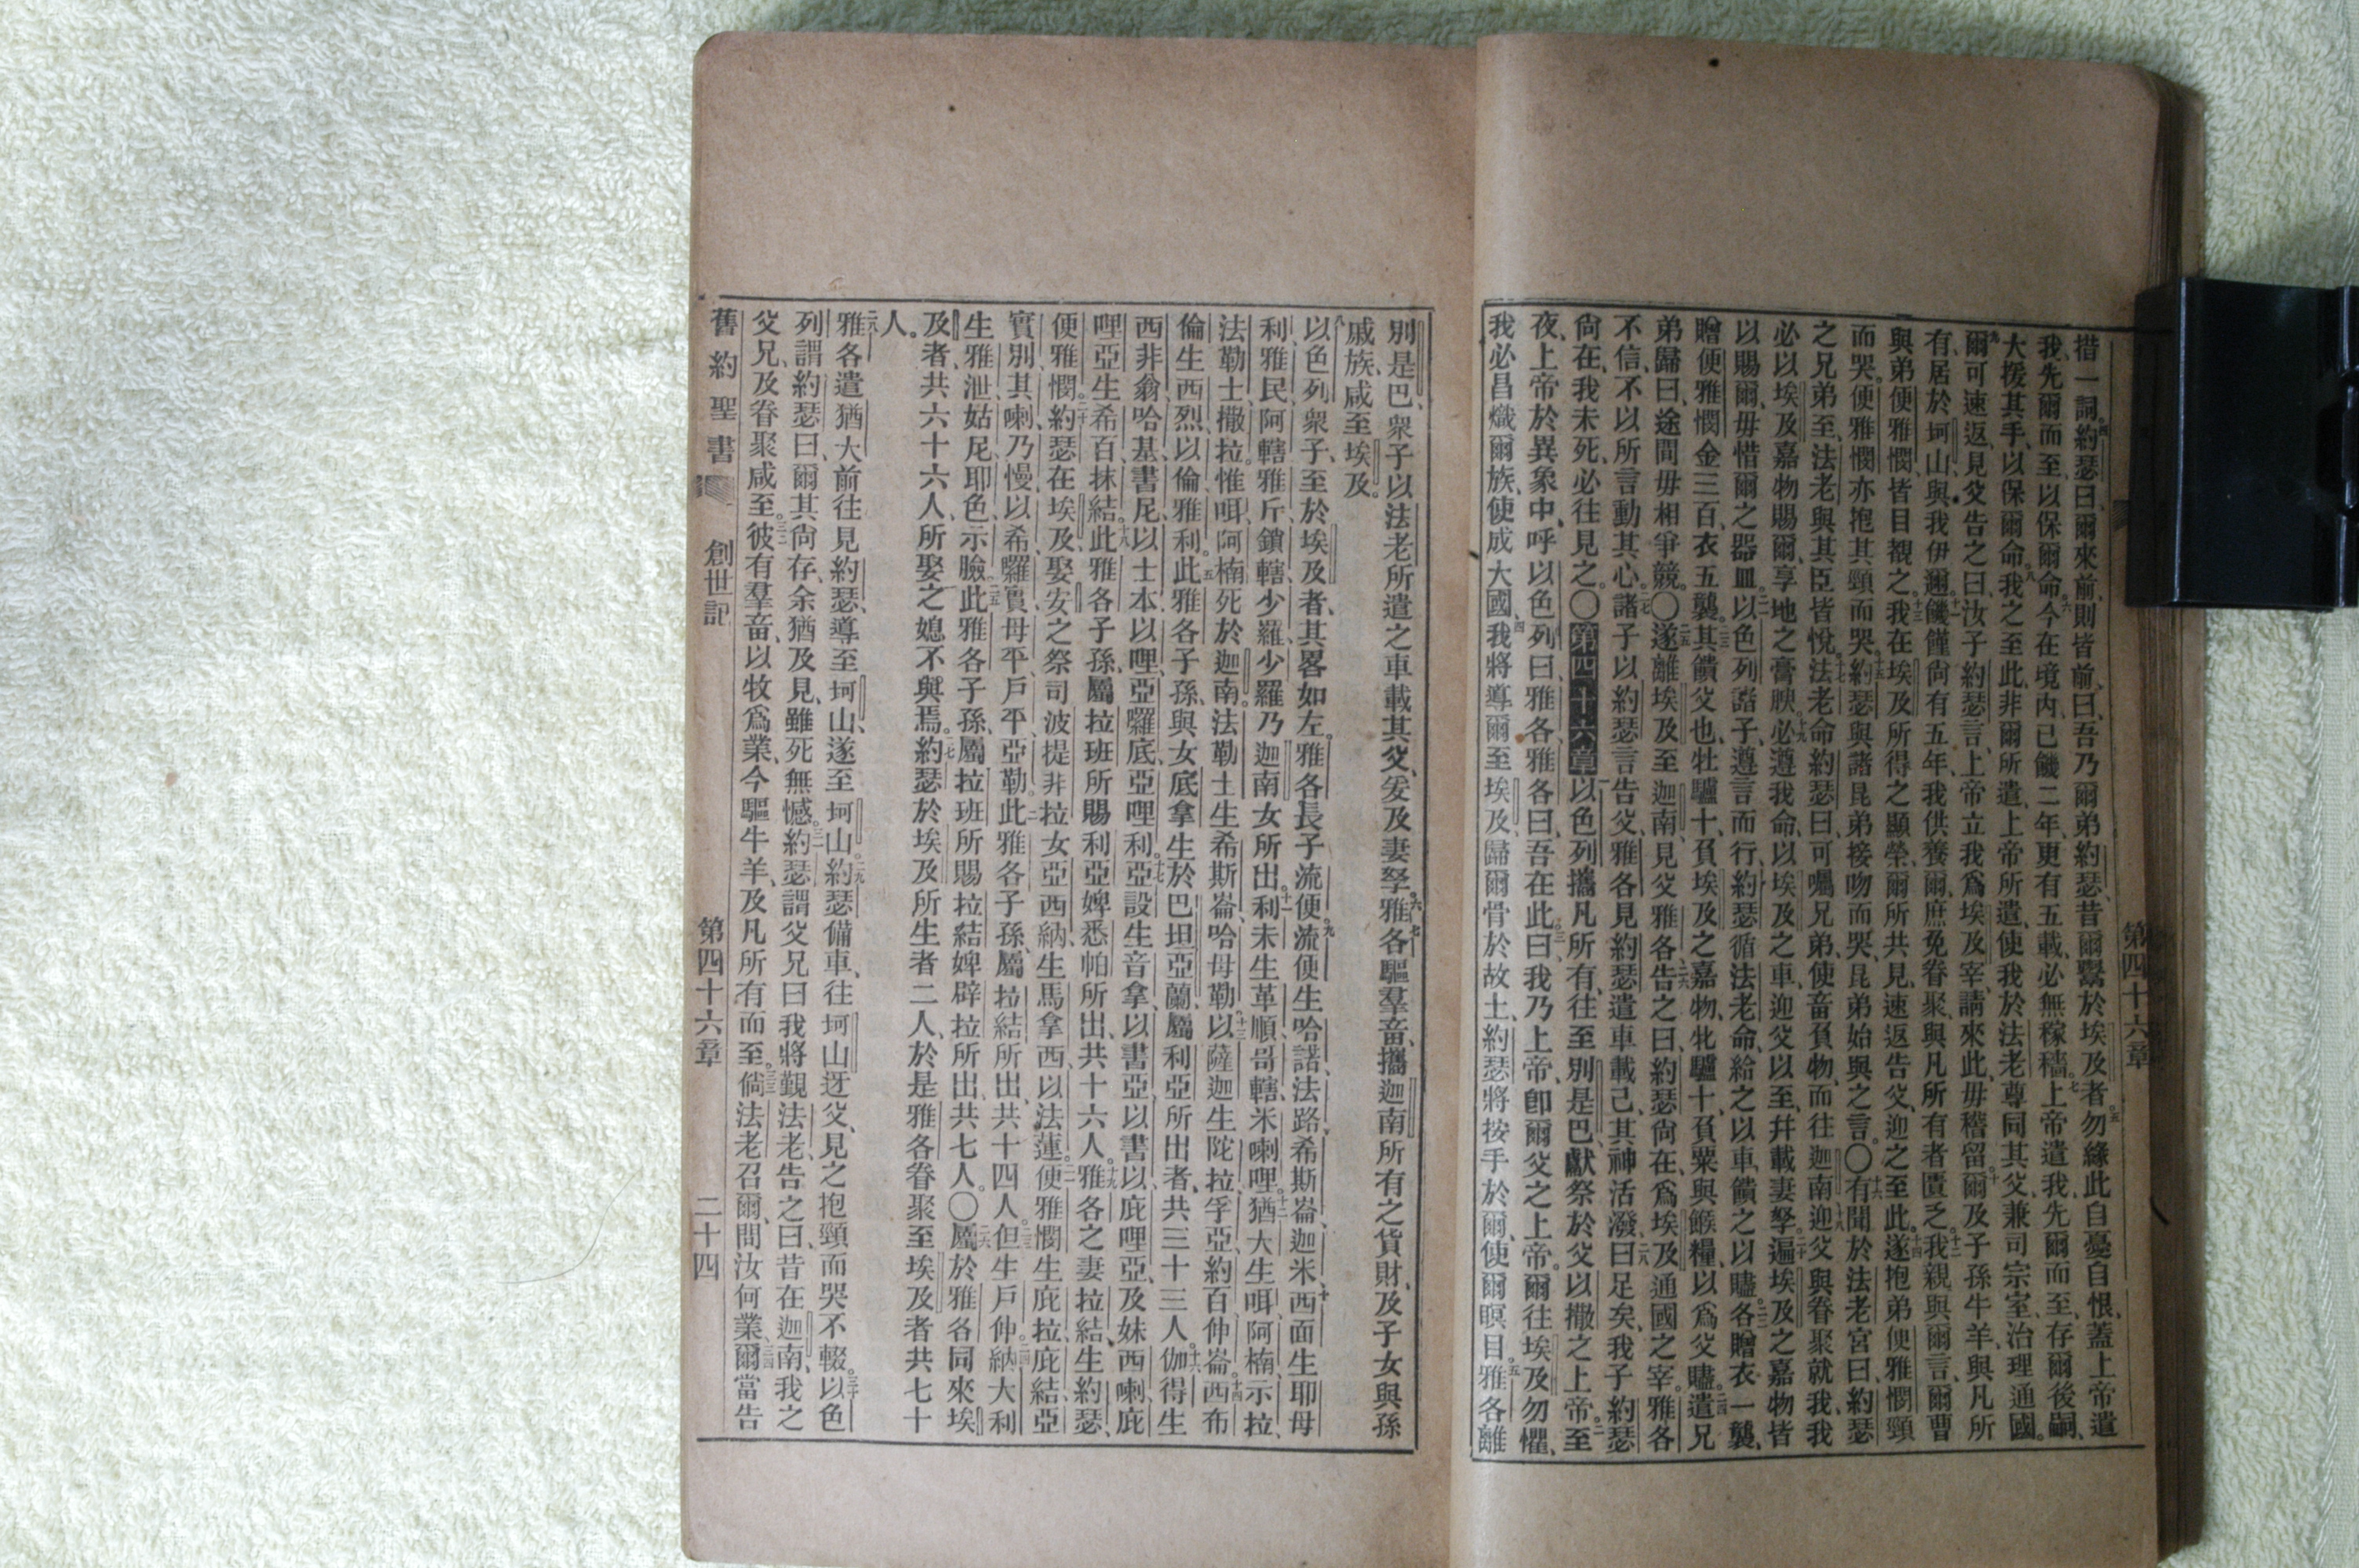 措一詞。四約瑟曰、爾來前、則皆前、曰、吾乃爾弟約瑟、昔爾鬻於埃及者。五勿緣此自憂自恨、蓋上帝遣
我、先爾而至、以保爾命。六今在境內、已饑二年、更有五載、必無稼穡。七上帝遣我、先爾而至、存爾後嗣、
大援其手、以保爾命。八我之至此、非爾所遣、上帝所遣、使我於法老尊同其父、兼司宗室、治理通國。
九爾可速返、見父告之曰、汝子約瑟言、上帝立我爲埃及宰、請來此、毋稽留。十爾及子孫牛羊、與凡所
有、居於坷山、與我伊邇。十一饑饉尙有五年、我供養爾、庶免眷聚、與凡所有者匱乏。十二我親與爾言、爾曹
與弟便雅憫、皆目覩之。十三我在埃及所得之顯榮、爾所共見、速返告父、迎之至此。十四遂抱弟便雅憫頸
而哭。便雅憫亦抱其頸而哭。十五約瑟與諸昆弟接吻而哭、昆弟始與之言。〇十六有聞於法老宮曰、約瑟
之兄弟至、法老與其臣皆悅。十七法老命約瑟曰、可囑兄弟、使畜負物、而往迦南。十八迎父與眷聚就我、我
必以埃及嘉物賜爾、享地之膏腴。十九必遵我命、以埃及之車、迎父以至、幷載妻孥。二十遍埃及之嘉物皆
以賜爾、毋惜爾之器皿。二一以色列諸子、遵言而行、約瑟循法老命、給之以車、饋之以贐。二二各贈衣一襲、
贈便雅憫金三百、衣五襲。二三其饋父也、牡驢十、負埃及之嘉物、牝驢十、負粟與餱糧、以爲父贐。二四遣兄
弟歸曰、途間毋相爭競。〇二五遂離埃及至迦南、見父雅各。二六告之曰、約瑟尙在、爲埃及通國之宰、雅各
不信、不以所言動其心。二七諸子以約瑟言告父、雅各見約瑟遣車載己、其神活潑。二八曰、足矣、我子約瑟
尙在、我未死、必往見之。〇第四十六章一以色列攜凡所有、往至別是巴、獻祭於父以撒之上帝。二至
夜、上帝於異象中、呼以色列曰、雅各、雅各、曰、吾在此。三曰、我乃上帝、卽爾父之上帝。爾往埃及勿懼、
我必昌熾爾族、使成大國。四我將導爾至埃及、歸爾骨於故土、約瑟將按手於爾、使爾瞑目。五雅各離
第四十六章
別是巴、衆子以法老所遣之車載其父、爰及妻孥。六七雅各驅羣畜、攜迦南所有之貨財、及子女與孫
戚族、咸至埃及。
八以色列衆子、至於埃及者、其畧如左。雅各長子流便。九流便生哈諾、法路、希斯崙、迦米。十西面生耶母
利、雅民、阿轄、雅斤、鎖轄、少羅、少羅乃迦南女所出。十一利未生革順、哥轄、米喇哩。十二猶大生咡、阿楠、示拉、
法勒士、撒拉、惟咡、阿楠死於迦南。法勒士生希斯崙、哈母勒。十三以薩迦生陀拉、孚亞、約百、伸崙。十四西布
倫生西烈、以倫、雅利。十五此雅各子孫、與女底拿、生於巴坦亞蘭、屬利亞所出者、共三十三人。十六伽得生
西非翁、哈基、書尼、以士本、以哩、亞囉底、亞哩利。十七亞設生音拿、以書亞、以書以、庇哩亞、及妹西喇、庇
哩亞生希百、抹結。十八此雅各子孫、屬拉班所賜利亞婢悉帕所出、共十六人。十九雅各之妻拉結、生約瑟、
便雅憫。二十約瑟在埃及、娶安之祭司波提非拉女亞西納、生馬拿西、以法蓮。二一便雅憫生庇拉、庇結、亞
實別、其喇、乃慢、以希、囉實、母平、戶平、亞勒。二二此雅各子孫、屬拉結所出、共十四人。二三但生戶伸。二四納大利
生雅泄、姑尼、耶色、示臉。二五此雅各子孫、屬拉班所賜拉結婢辟拉所出、共七人。〇二六屬於雅各、同來埃
及者、共六十六人、所娶之媳不與焉。二七約瑟於埃及所生者二人、於是雅各眷聚至埃及者共七十
人。
二八雅各遣猶大前往見約瑟、導至坷山、遂至坷山。二九約瑟備車、往坷山迓父、見之抱頸而哭不輟。三十以色
列謂約瑟曰、爾其尙存、余猶及見、雖死無憾。三一約瑟謂父兄曰、我將覲法老、告之曰、昔在迦南、我之
父兄及眷聚咸至。三二彼有羣畜、以牧爲業、今驅牛羊、及凡所有而至。三三倘法老召爾、問汝何業、三四爾當告
舊約聖書 創世記 第四十六章 二十四